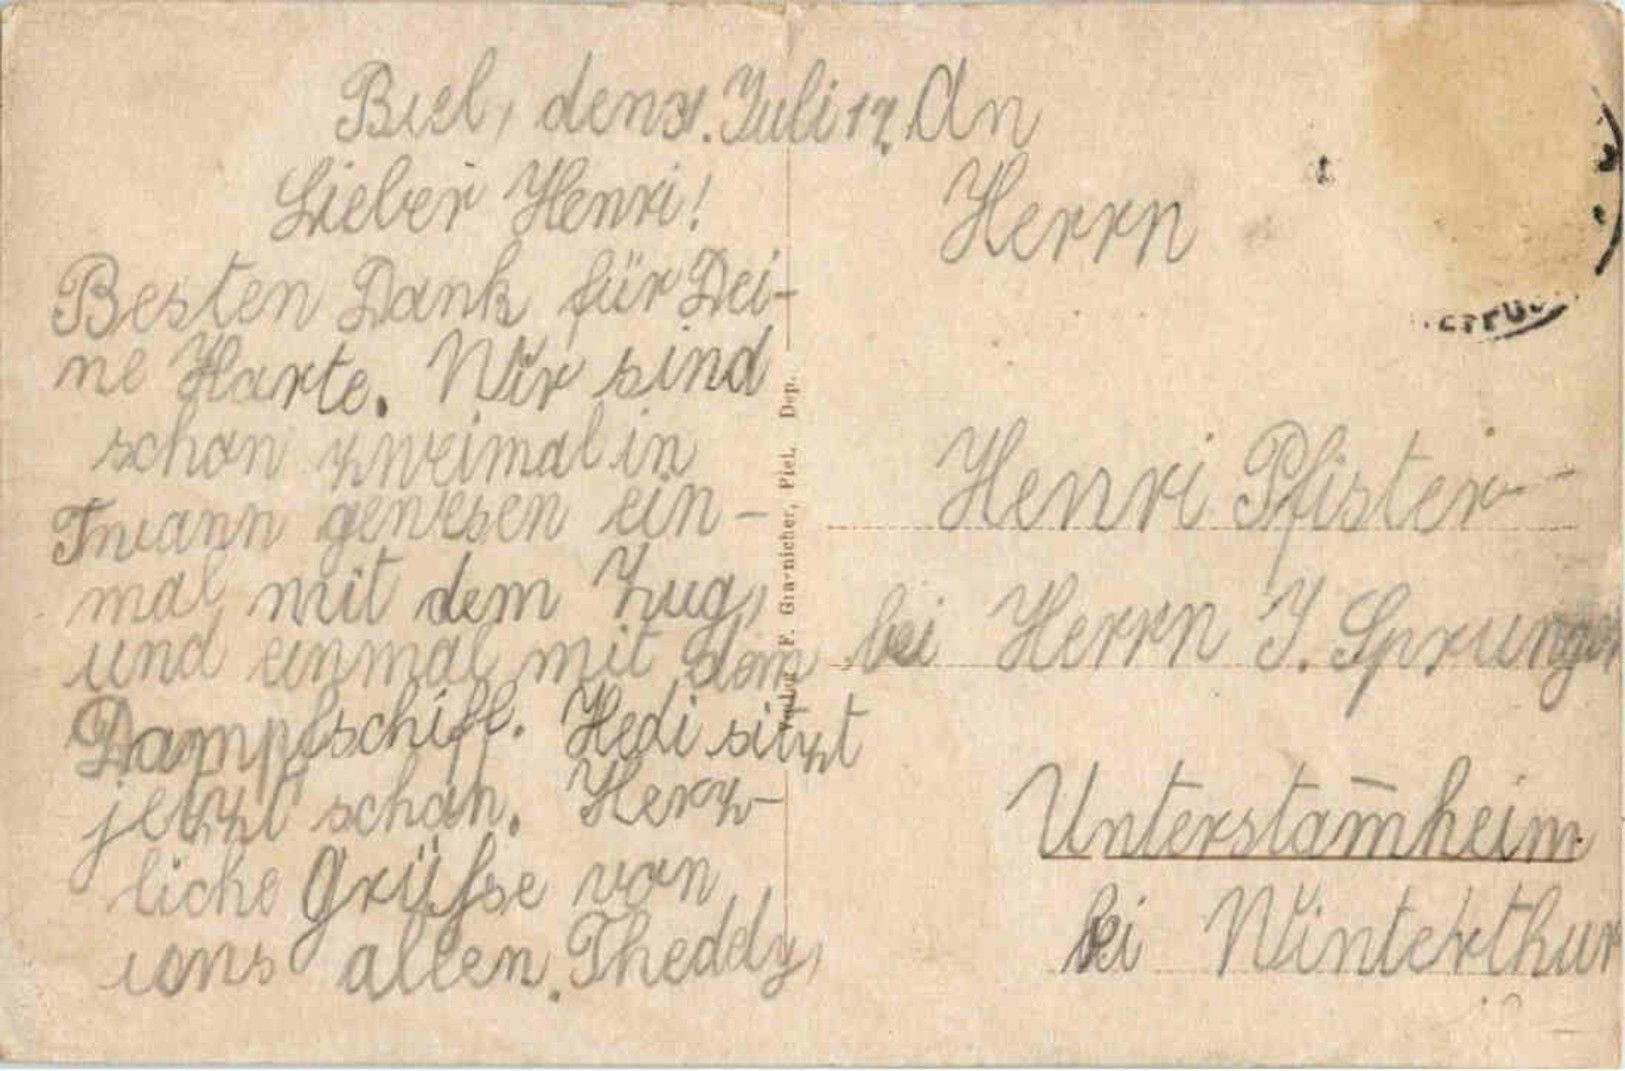 Biel, den 31. Juli 17.
Lieber Henri!
Besten Dank für Dei-
ne Karte. Wir sind
schon zweimal in
Twann gewesen ein-
mal mit dem Zug,
und einmal mit dem
Dampfschiff. Hedi sitzt
jetzt schon. Herz-
liche Grüsse von
uns allen. Theddy,
An
Herrn
Henri Pfister
bei Herrn J. Sprunger
Unterstam̄heim.
bei Winterthur
Verlag F. Dep.